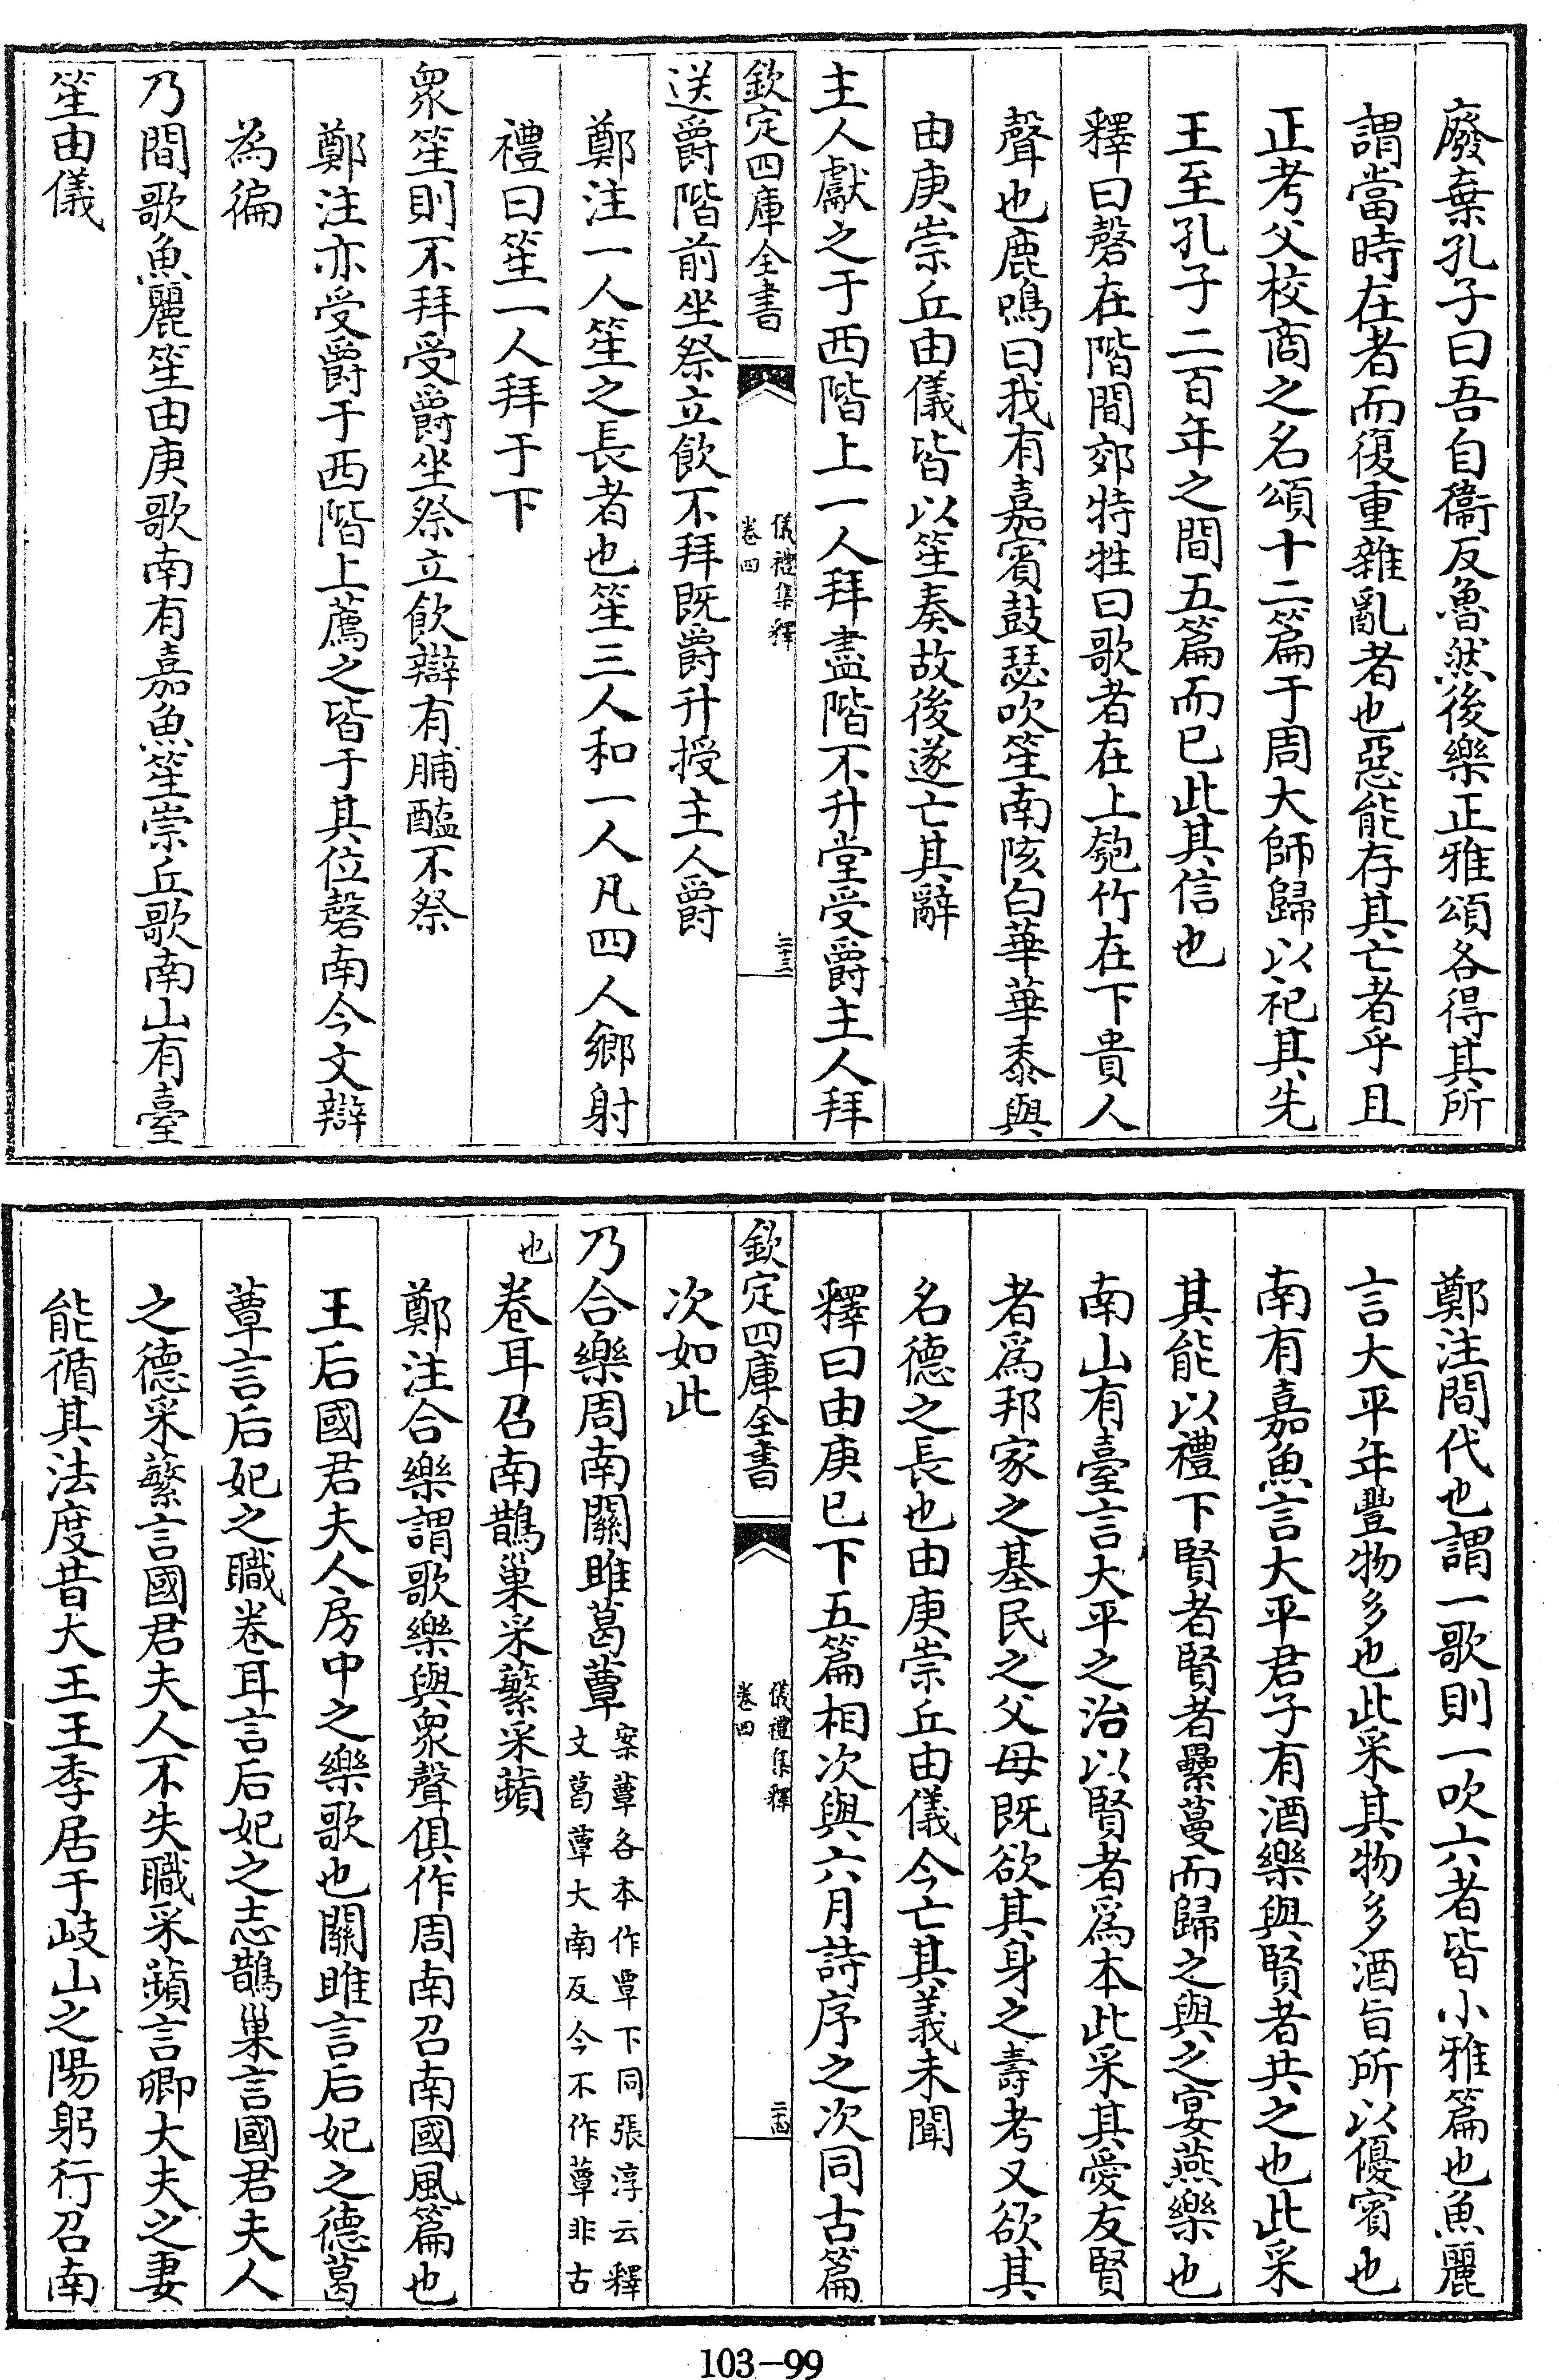 廢棄孔子曰吾自衞反魯然後樂正雅頌各得其所
謂當時在者而復重雜亂者也惡能存其亡者乎且
正考父校商之名頌十二篇于周大師歸以祀其先
王至孔子二百年之間五篇而已此其信也
釋曰磬在階間郊特牲曰歌者在上匏竹在下貴人
聲也鹿鳴曰我有嘉賓鼓瑟吹笙南陔白華華黍與
由庚崇丘由儀皆以笙奏故後遂亡其辭
主人獻之于西階上一人拜盡階不升堂受爵主人拜
欽定四庫全書
儀禮集釋
卷四
二十三
送爵階前坐祭立飲不拜既爵升授主人爵
鄭注一人笙之長者也笙三人和一人凡四人鄉射
禮曰笙一人拜于下
衆笙則不拜受爵坐祭立飲辯有脯醢不祭
鄭注亦受爵于西階上薦之皆于其位磬南今文辯
為徧
乃間歌魚麗笙由庚歌南有嘉魚笙崇丘歌南山有臺
笙由儀
鄭注間代也謂一歌則一吹六者皆小雅篇也魚麗
言大平年豐物多也此采其物多酒旨所以優賓也
南有嘉魚言大平君子有酒樂與賢者共之也此采
其能以禮下賢者賢者纍蔓而歸之與之宴燕樂也
南山有臺言大平之治以賢者爲本此采其愛友賢
者爲邦家之基民之父母既欲其身之壽考又欲其
名德之長也由庚崇丘由儀今亡其義未聞
釋曰由庚已下五篇相次與六月詩序之次同古篇
欽定四庫全書
儀禮集釋
卷四
二十四
次如此
乃合樂周南關雎葛蕈
案蕈各本作覃下同張淳云釋
文葛蕈大南反今不作蕈非古
也
卷耳召南鵲巢采蘩采蘋
鄭注合樂謂歌樂與衆聲俱作周南召南國風篇也
王后國君夫人房中之樂歌也關雎言后妃之德葛
蕈言后妃之職卷耳言后妃之志鵲巢言國君夫人
之德采蘩言國君夫人不失職采蘋言卿大夫之妻
能循其法度昔大王王季居于岐山之陽躬行召南
103-99